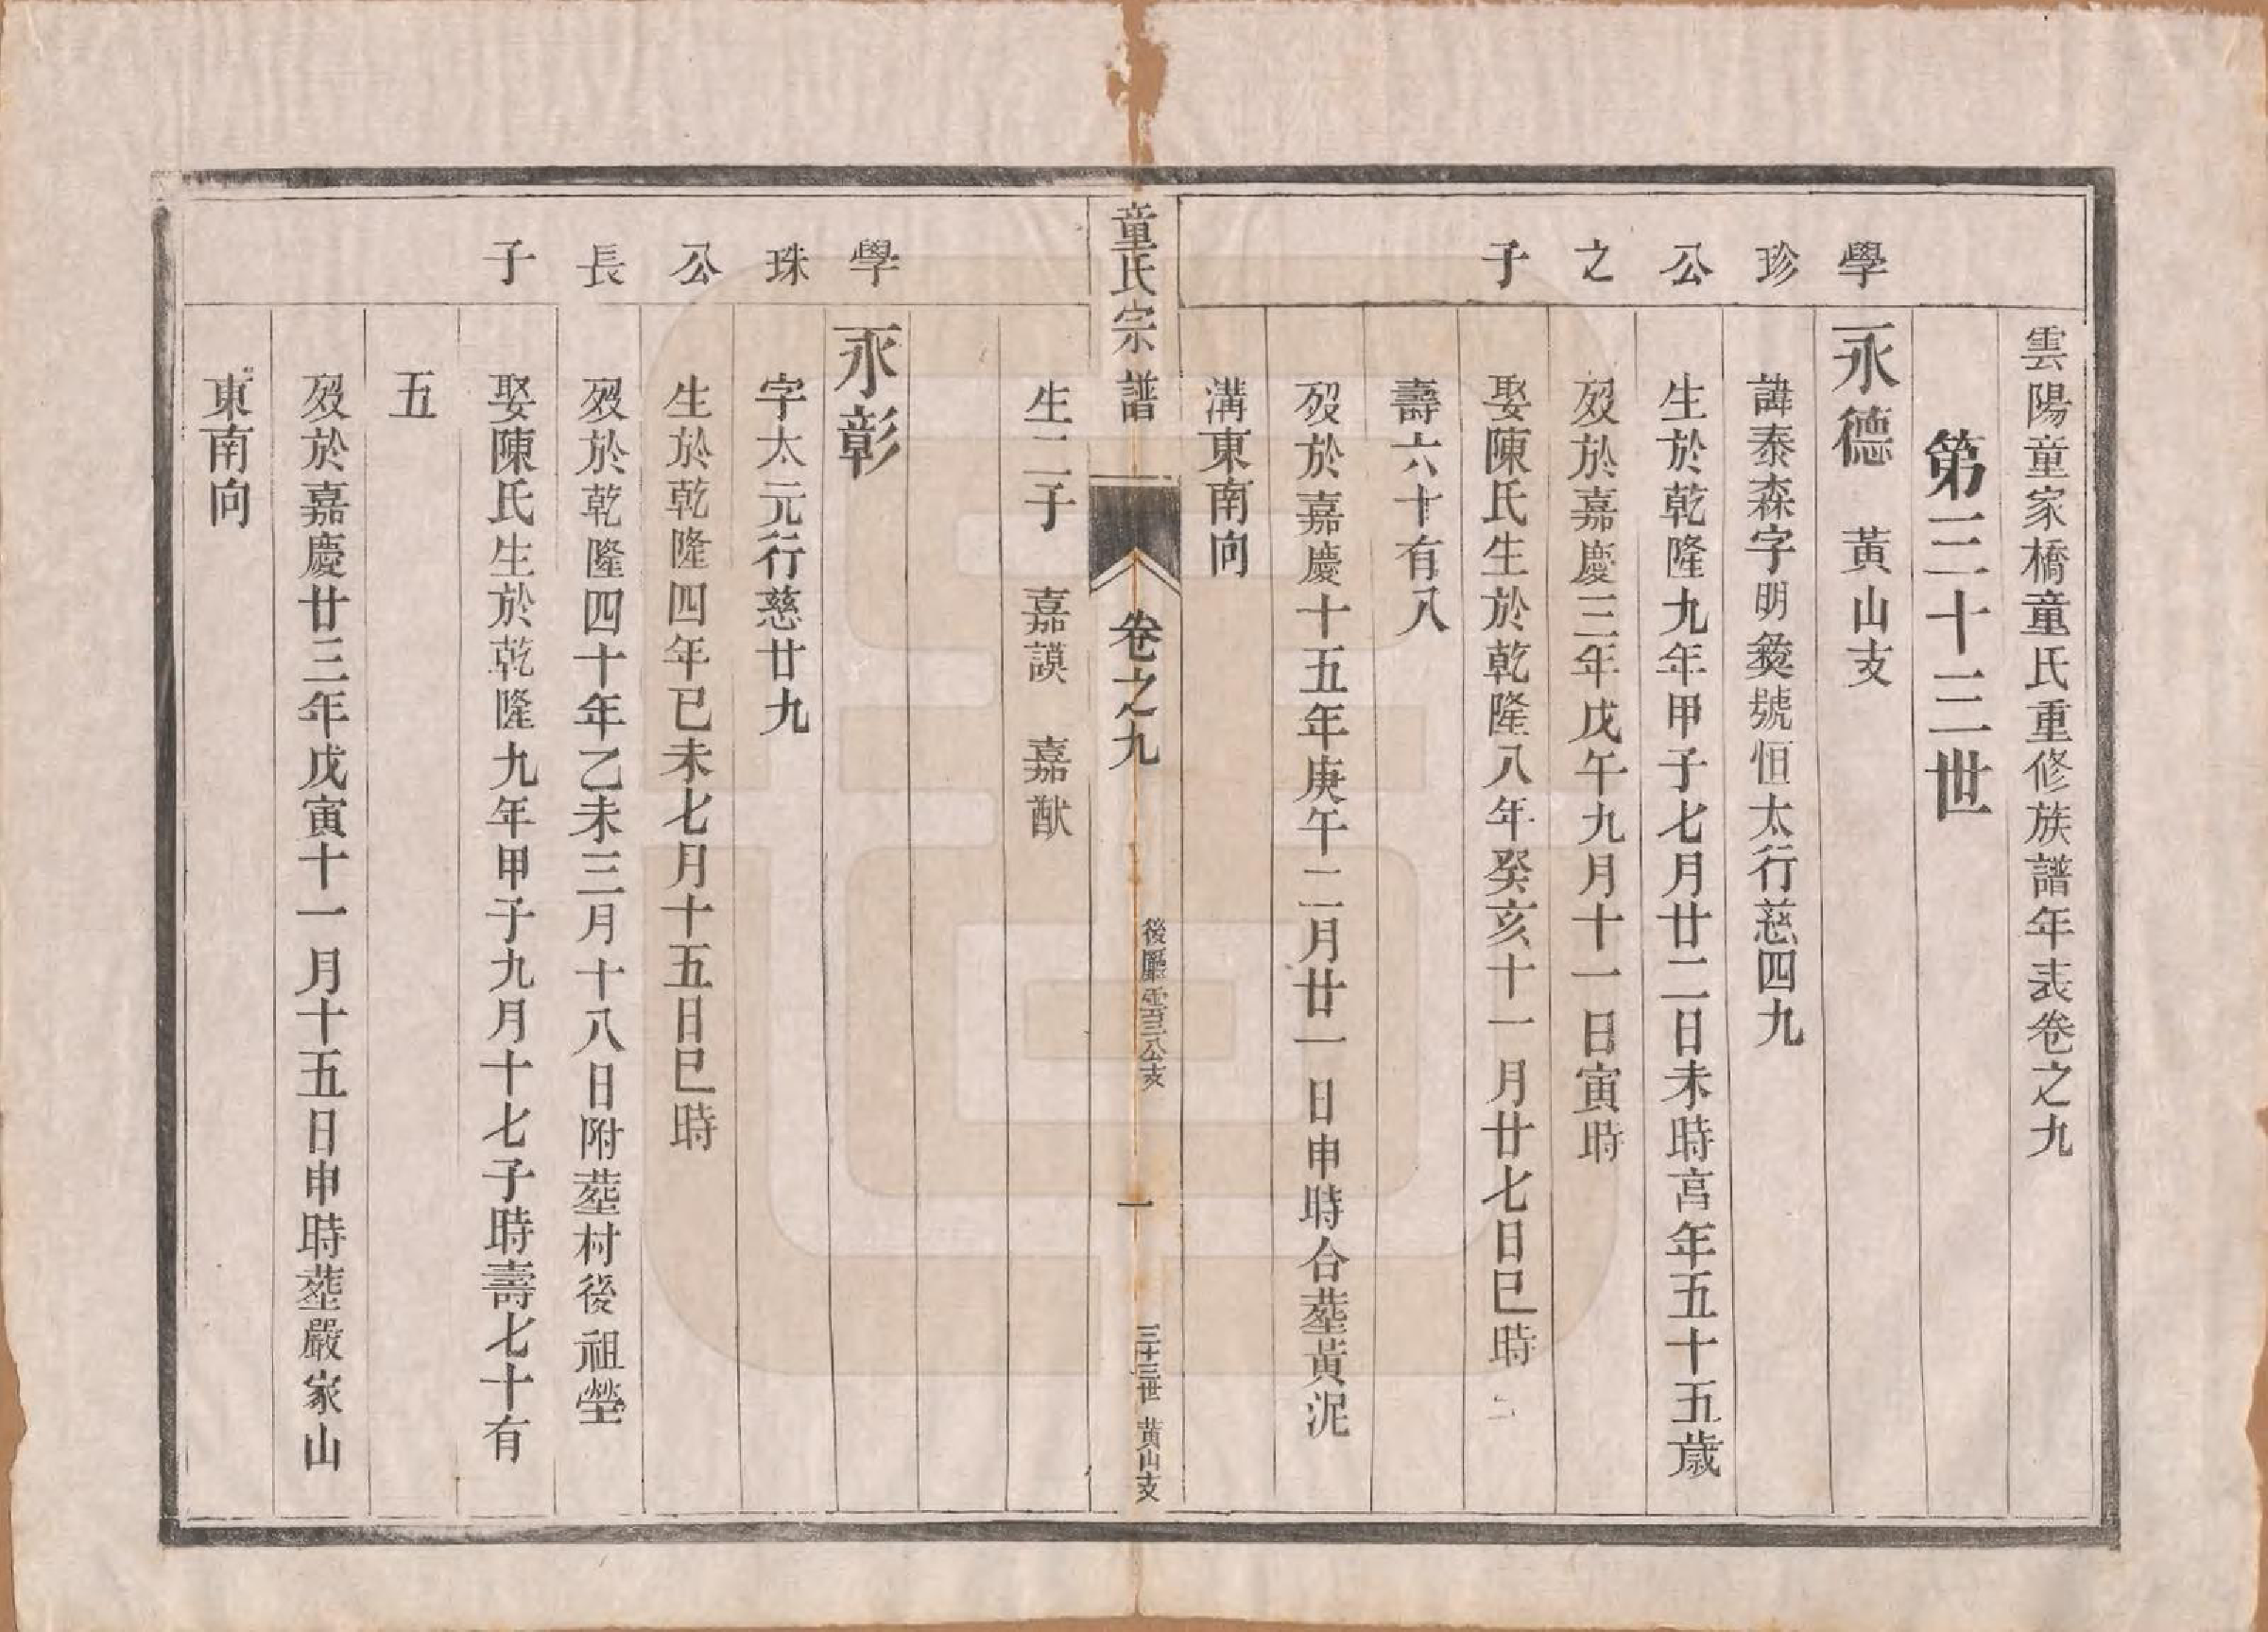 雲陽童家橋童氏重修族譜年表卷之九
第三十三世
學珍公之子
永德　黃山支
諱泰森字明燹號恒太行慈四九
生於乾隆九年甲子七月廿二日未時享年五十五歲
歿於嘉慶三年戊午九月十一日寅時
娶陳氏生於乾隆八年癸亥十一月廿七日巳時
壽六十有八
歿於嘉慶十五年庚午二月廿一日申時合塟黃泥
溝東南向
童氏宗譜
卷之九
公支
一
三十三世　黃山支
生二子　嘉謨　嘉猷
學珠公長子
永彰
字太元行慈廿九
生於乾隆四年己未七月十五日巳時
歿於乾隆四十年乙未三月十八日附塟村後祖塋
娶陳氏生於乾隆九年甲子九月十七子時壽七十有
五
歿於嘉慶廿三年戊寅十一月十五日申時塟嚴家山
東南向